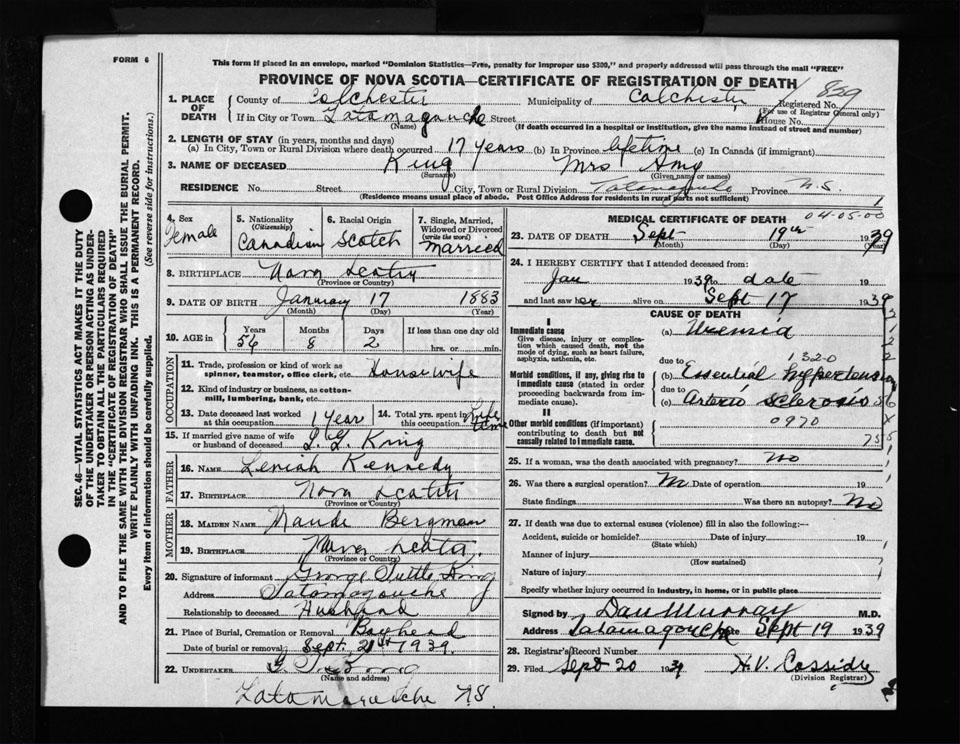 FORM 6
This form if placed in an envelope, marked "Dominion Statistics—Free, penalty for improper use $300," and properly addressed will pass through the mail "FREE"
PROVINCE OF NOVA SCOTIA—CERTIFICATE OF REGISTRATION OF DEATH
839
1. PLACE OF DEATH County of Colchester Municipality of Colchester Registered No.
(For use of Registrar General only)
If in City or Town Tatamagouche Street House No.
(Name) (If death occurred in a hospital or institution, give the name instead of street and number)
2. LENGTH OF STAY (in years, months and days)
(a) In City, Town or Rural Division where death occurred 17 years (b) In Province lifetime (c) In Canada (if immigrant)
3. NAME OF DECEASED King Mrs Amy
(Surname) (Given name or names)
RESIDENCE No. Street City, Town or Rural Division Tatamagouche Province N.S.
(Residence means usual place of abode. Post Office Address for residents in rural parts not sufficient) 1
4. Sex Female
5. Nationality (Citizenship) Canadian
6. Racial Origin Scotch
7. Single, Married, Widowed or Divorced (write the word) Married
8. BIRTHPLACE Nova Scotia
(Province or Country)
9. DATE OF BIRTH January 17 1883
(Month) (Day) (Year)
10. AGE in Years Months Days If less than one day old
56 8 2 hrs. or min.
OCCUPATION
11. Trade, profession or kind of work as spinner, teamster, office clerk, etc. Housewife
12. Kind of industry or business, as cotton-mill, lumbering, bank, etc.
13. Date deceased last worked at this occupation 1 year
14. Total yrs. spent in this occupation life time
15. If married give name of wife or husband of deceased King
FATHER
16. NAME Kennedy
17. BIRTHPLACE Nova Scotia
(Province or Country)
MOTHER
18. MAIDEN NAME Maude Bergman
19. BIRTHPLACE Nova Scotia
(Province or Country)
20. Signature of informant George Tuttle King
Address Tatamagouche
Relationship to deceased Husband
21. Place of Burial, Cremation or Removal Bayhead
Date of burial or removal Sept. 21st 1939.
22. UNDERTAKER
(Name and address)
Tatamagouche N.S.
MEDICAL CERTIFICATE OF DEATH
04-05-00
23. DATE OF DEATH Sept 19th 1939
(Month) (Day) (Year)
24. I HEREBY CERTIFY that I attended deceased from:
Jan 1939 to date 19
and last saw her alive on Sept 17 1939
CAUSE OF DEATH
I
Immediate cause (a) Uremia
Give disease, injury or complication which caused death, not the mode of dying, such as heart failure, asphyxia, asthenia, etc.
due to 1320
Morbid conditions, if any, giving rise to immediate cause (stated in order proceeding backwards from immediate cause). (b) Essential hypertension
due to
(c) Arterio sclerosis 56
II
Other morbid conditions (if important) contributing to death but not causally related to immediate cause. 0970
75
25. If a woman, was the death associated with pregnancy? no
26. Was there a surgical operation? Date of operation 19
State findings Was there an autopsy? No
27. If death was due to external causes (violence) fill in also the following:—
Accident, suicide or homicide? Date of injury 19
(State which)
Manner of injury
(How sustained)
Nature of injury
Specify whether injury occurred in industry, in home, or in public place
Signed by Dan Murray M.D.
Address Tatamagouche Date Sept 19 1939
28. Registrar's Record Number
29. Filed Sept 20 1939 H.V. Cassidy
(Division Registrar)
SEC. 46—VITAL STATISTICS ACT MAKES IT THE DUTY
OF THE UNDERTAKER OR PERSON ACTING AS UNDER-
TAKER TO OBTAIN ALL THE PARTICULARS REQUIRED
IN THE "CERTIFICATE OF REGISTRATION OF DEATH"
AND TO FILE THE SAME WITH THE DIVISION REGISTRAR WHO SHALL ISSUE THE BURIAL PERMIT.
WRITE PLAINLY WITH UNFADING INK. THIS IS A PERMANENT RECORD.
Every item of information should be carefully supplied. (See reverse side for instructions.)